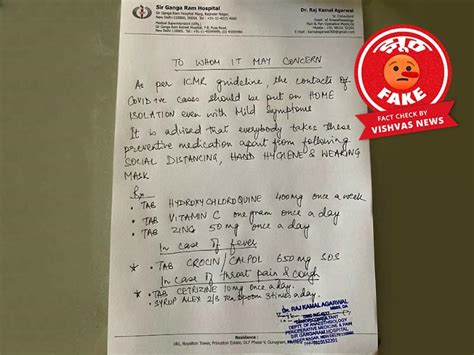 Sir Ganga Ram Hospital
Sir Ganga Ram Hospital Marg, Rajinder Nagar,
Dr. Raj Kamal Agarwal
Sr. Consultant
TO WHOM IT MAY CONCERN
As per ICMR guideline, the contacts of
COVID +ve cases should be put on HOME
ISOLATION even with Mild Symptoms
It is advised that everybody takes these
preventive medication apart from following
SOCIAL DISTANCING, HAND HYGIENE & WEARING
MASK
Rx
• TAB HYDROXYCHLOROQUINE 400mg once a week
• TAB VITAMIN C one gram once a day
• TAB ZINC 50 mg once a day
In case of fever
• TAB CROCIN/CALPOL 650 mg SOS
In case of throat pain & cough
• TAB CETRIZINE 10mg once a day.
• SYRUP ALEX 2/3 tea spoon 3 times a day.
Dr. RAJ KAMAL AGARWAL
Residence :
झूठ
FAKE
FACT CHECK BY
VISHVAS NEWS